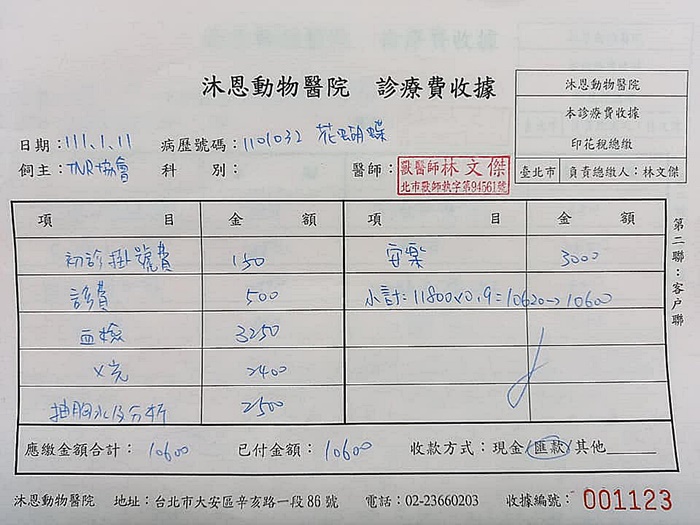 沐恩動物醫院 診療費收據
沐恩動物醫院
本診療費收據
印花稅總繳
臺北市 負責總繳人：林文傑
日期：111.1.11 病歷號碼：1101032 花蝴蝶
飼主：TNR協會 科別： 醫師：獸醫師 林文傑
北市獸師執字第94561號
項目 金額 項目 金額
初診掛號費 150 安樂 3000
診費 500 小計=11800×0.9=10620→10600
血檢 3250
X光 2400
抽胸水及分析 2500
應繳金額合計：10600 已付金額：10600 收款方式：現金/匯款/其他
第二聯：客戶聯
沐恩動物醫院 地址：台北市大安區辛亥路一段86號 電話：02-23660203 收據編號：001123